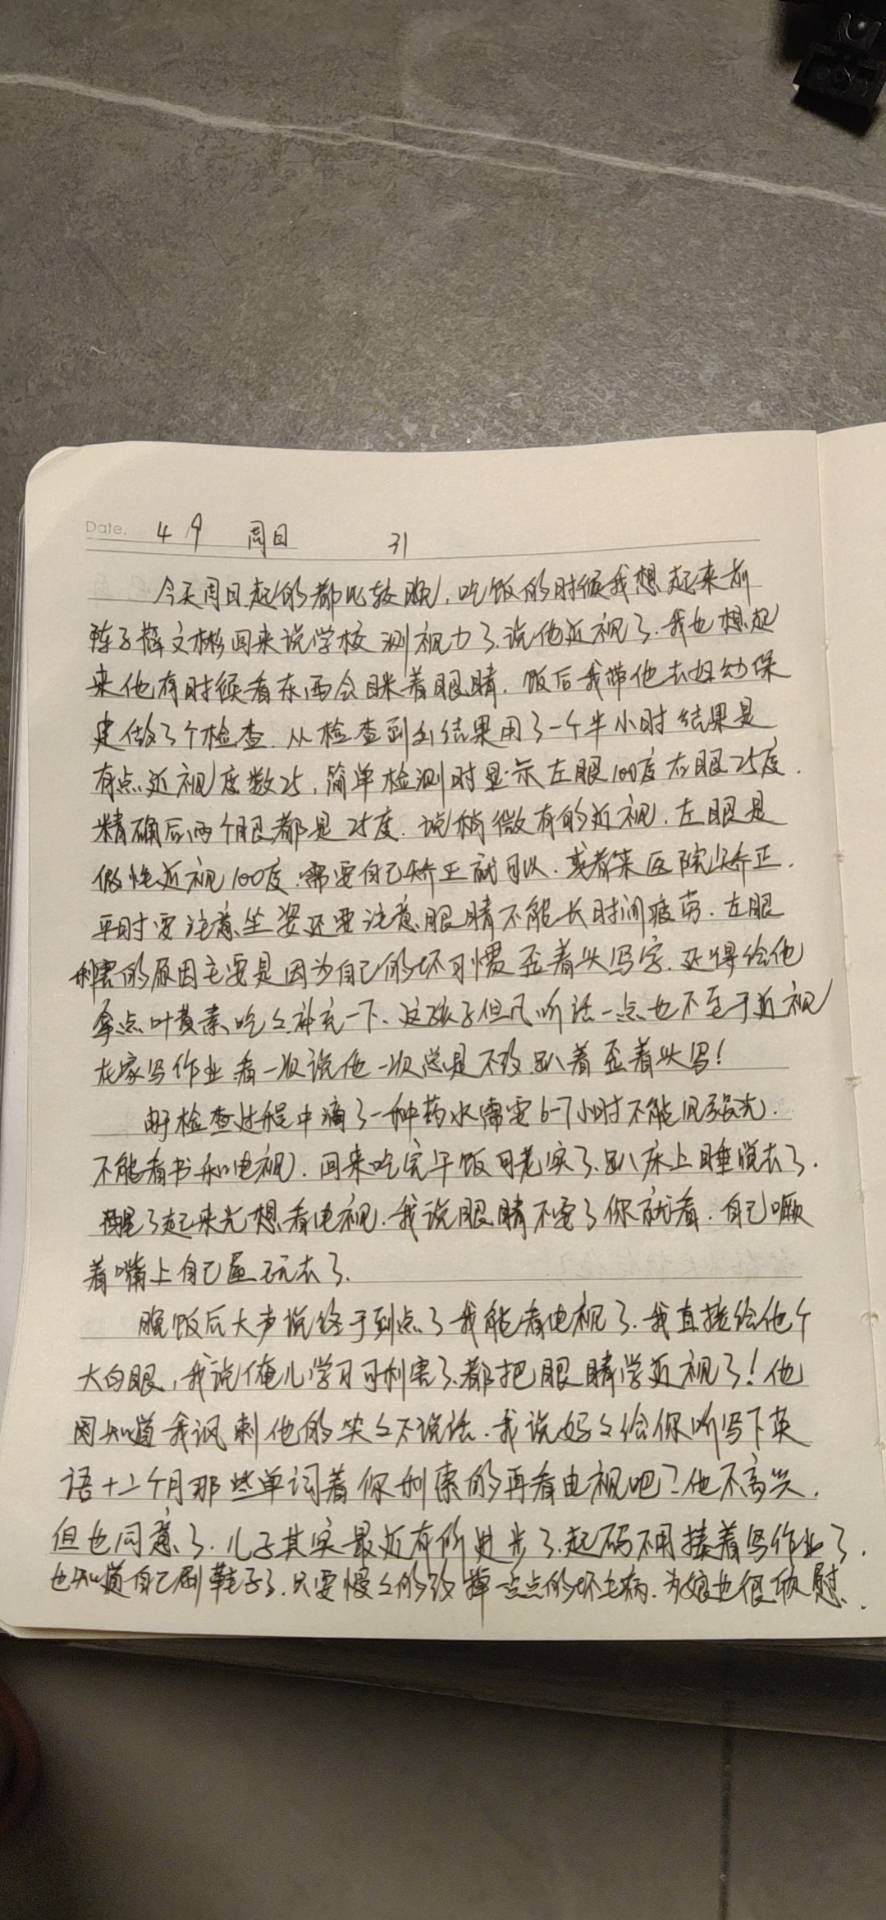 Date. 4.9 周日 31
今天周日起的都比较晚,吃饭的时候我想起来前
阵子薛文彬回来说学校测视力了.说他近视了.我也想起
来他有时候看东西会眯着眼睛.饭后我带他去妇幼保
建做了个检查.从检查到出结果用了一个半小时结果是
有点近视度数25,简单检测时显示左眼100度右眼25度.
精确后两个眼都是25度.说稍微有的近视.左眼是
假性近视100度.需要自己矫正就可以.或者来医院矫正.
平时要注意坐姿还要注意眼睛不能长时间疲劳.左眼
利害的原因主要是因为自己的坏习惯歪着头写字.还得给他
拿点叶黄素吃々补充一下、这孩子但凡听话一点也不至于近视
在家写作业看一次说他一次总是不改趴着歪着头写!
由于检查过程中滴了一种药水需要6-7小时不能见强光.
不能看书和电视.回来吃完午饭可老实了.趴床上睡觉去了.
睡醒了起来光想看电视.我说眼睛不要了你就看.自己噘
着嘴上自己屋玩去了.
晚饭后大声说终于到点了我能看电视了.我直接给他个
大白眼,我说俺儿学习可利害了.都把眼睛学近视了!他
因知道我讽刺他的笑々不说话.我说妈々给你听写下英
语十二个月那些单词看你利索的再看电视吧?他不高兴.
但也同意了.儿子其实最近有所进步了.起码不用揍着写作业了.
也知道自己刷鞋子了.只要慢々的改掉一点点的坏毛病.为娘也很欣慰.